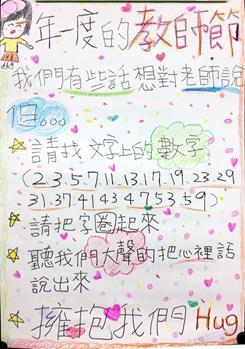 年一度的教師節
我們有些話想對老師說
但。。。
請找文字上的數字
(2.3.5.7.11.13.17.19.23.29
31.37.41 43 47 53.59)
請把字圈起來
聽我們大聲的把心裡話
說出來
擁抱我們 Hug